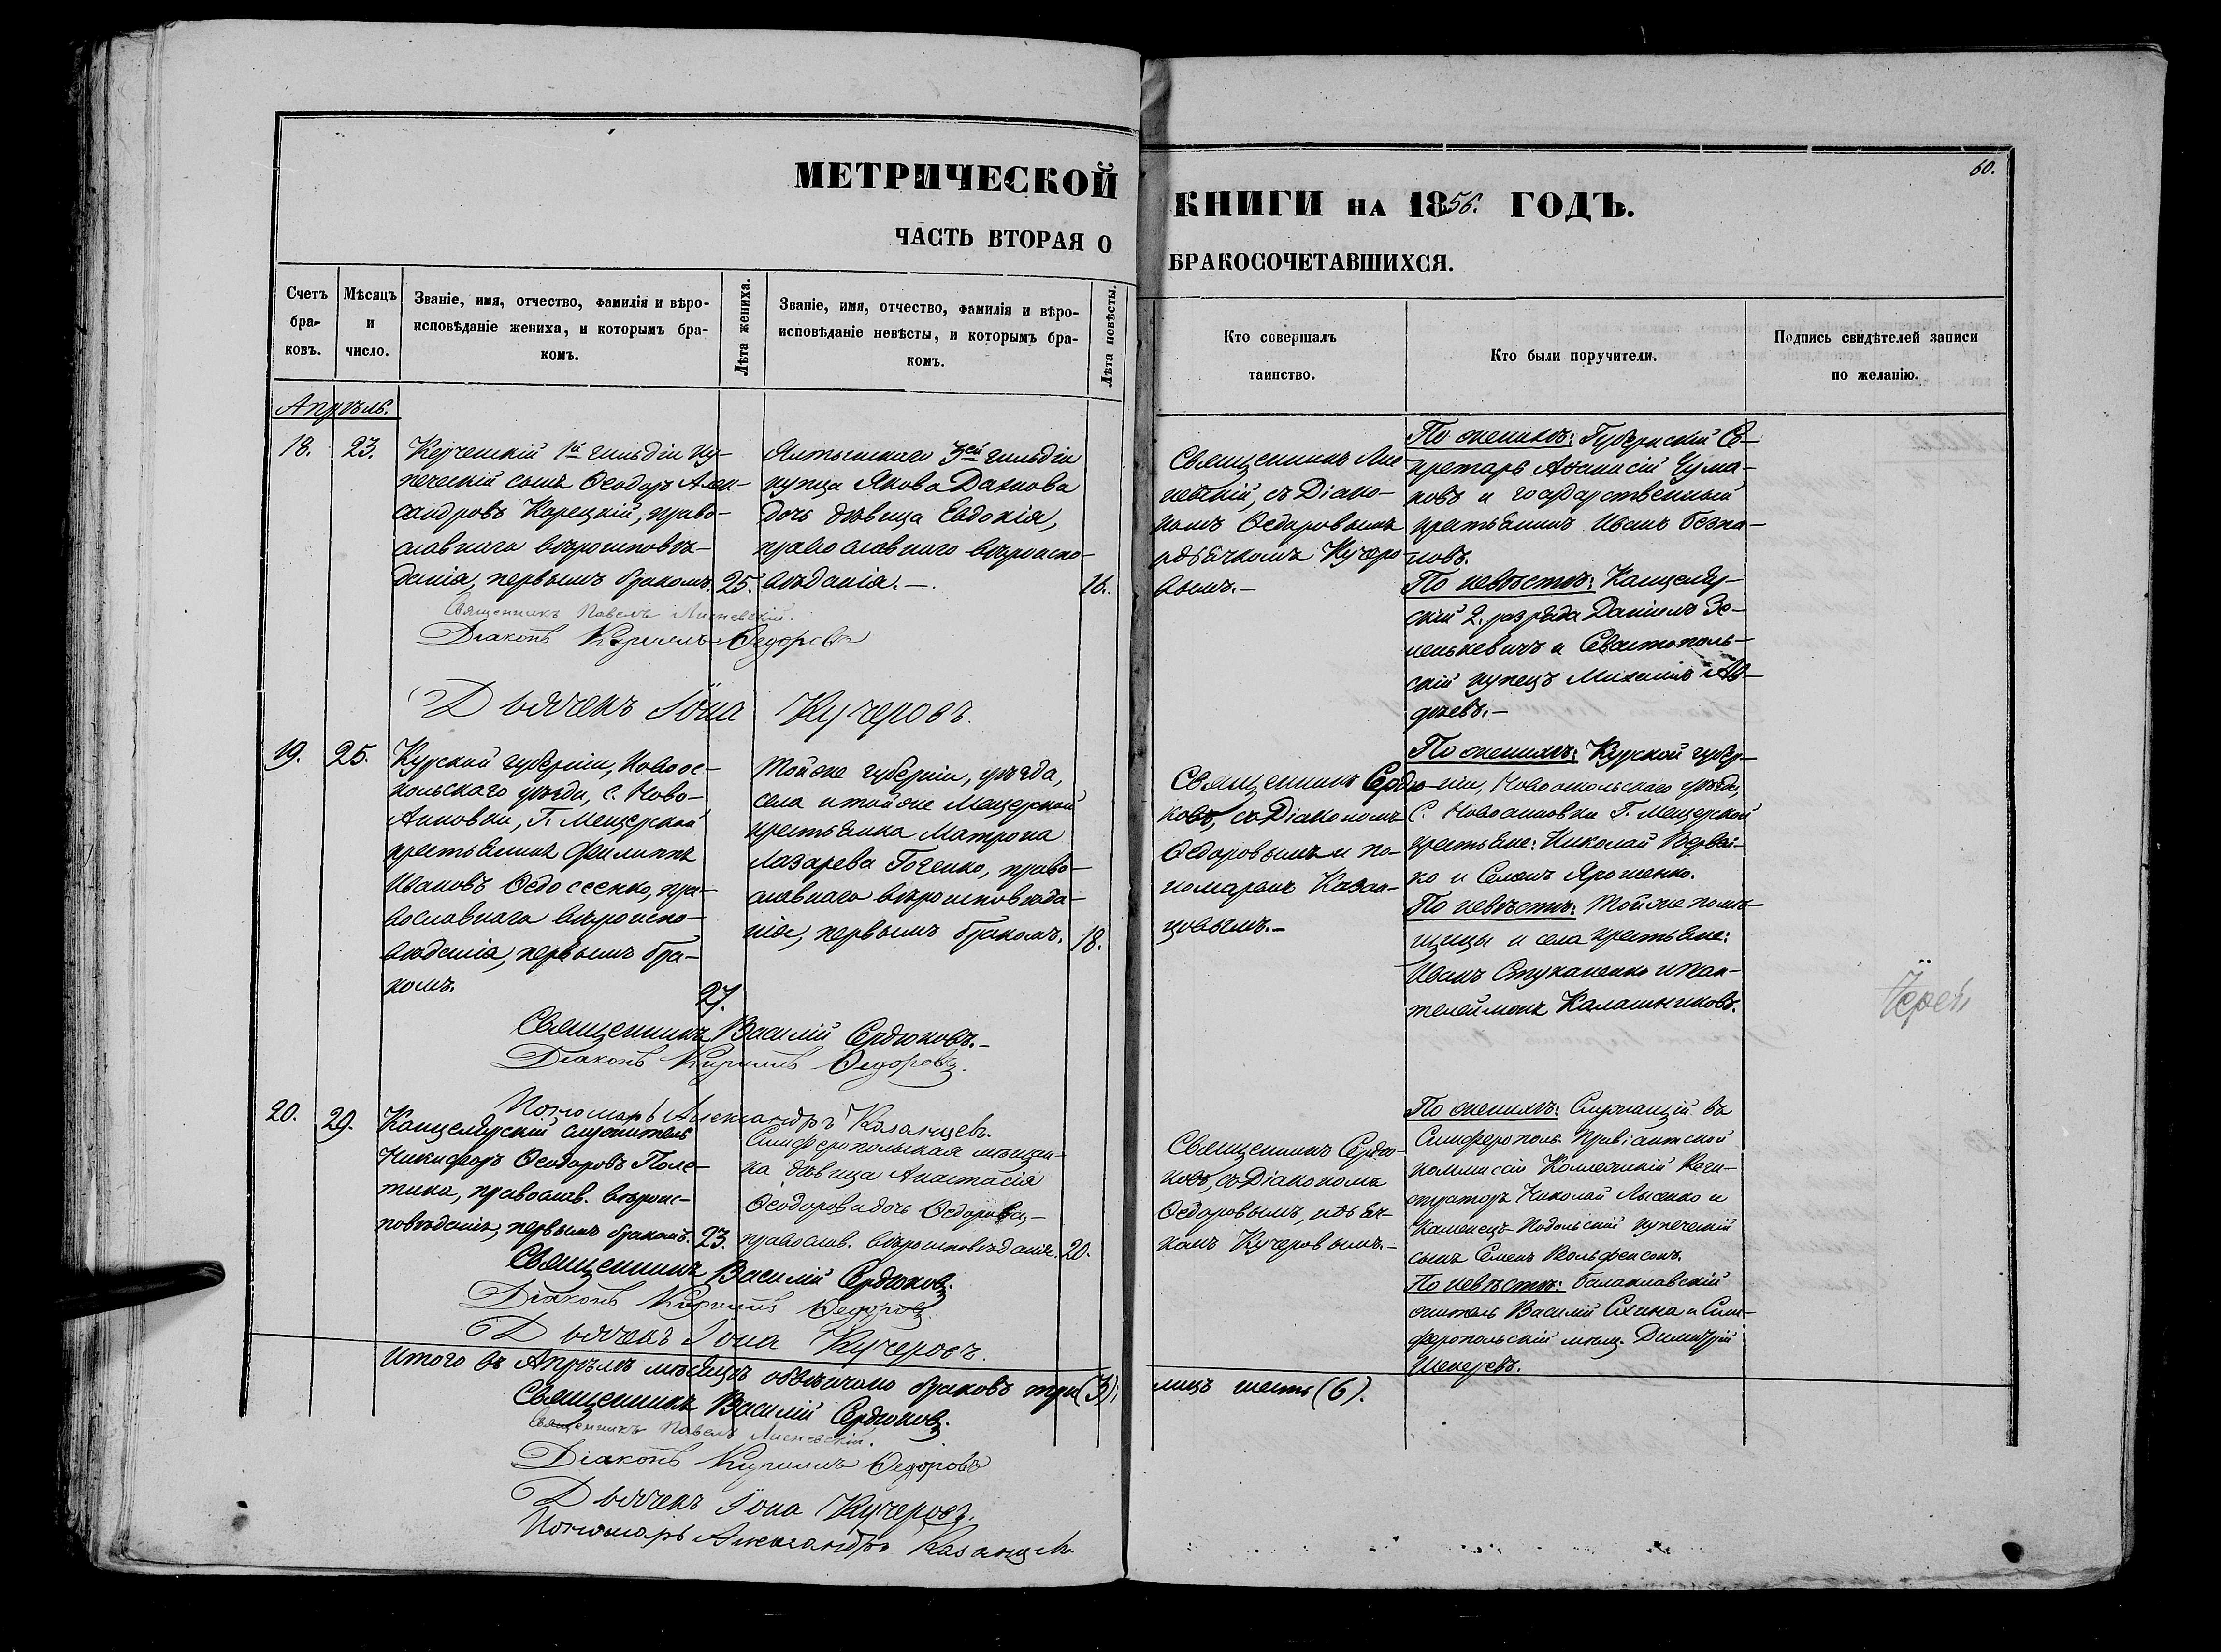 60.
МЕТРИЧЕСКОЙ КНИГИ НА 1856. ГОДЪ.
ЧАСТЬ ВТОРАЯ О БРАКОСОЧЕТАВШИХСЯ.
Счетъ
бра-
ковъ.
Мѣсяцъ
и
число.
Званіе, имя, отчество, фамилія и вѣро-
исповѣданіе жениха, и которымъ бра-
комъ.
Лѣта жениха.
Званіе, имя, отчество, фамилія и вѣро-
исповѣданіе невѣсты, и которымъ бра-
комъ.
Лѣта невѣсты.
Кто совершалъ
таинство.
Кто были поручители.
Подпись свидѣтелей записи
по желанію.
Апрѣль.
18.
23.
Керченскій 1й гильдіи ку-
печескій сынъ Ѳеодоръ Алек-
сандровъ Корецкій, право-
славнаго вѣроисповѣ-
данія, первымъ бракомъ.
25.
Ялтинскаго 3ей гильдіи
купца Якова Дахнова
дочь дѣвица Евдокія,
православнаго вѣроиспо-
вѣданія.—
16.
Священникъ Лис-
невскій, съ Діако-
номъ Ѳедоровымъ
и дьячкомъ Кучеро-
вымъ.—
По женихѣ: Губернскій Се-
кретарь Аѳанасій Чума-
ковъ и государственный
крестьянинъ Иванъ
По невѣстѣ: Канцеляр-
скій 2. разряда Даніилъ Зе-
ленкевичъ и Севастополь-
скій купецъ Михаилъ Ав-
дѣевъ.—
Священникъ Павелъ Лисневскій.
Діаконъ Кириллъ Ѳедоровъ
Дьячекъ Іона Кучеровъ.
19.
25.
Курской губерніи, Новоос-
кольскаго уѣзда, С. Ново-
Анновки, Г. Мещерской
крестьянинъ Филиппъ
Ивановъ Ѳедосеенко, пра-
вославнаго вѣроиспо-
вѣданія, первымъ бра-
комъ.
27.
Той же губерніи, уѣзда,
села и той же Мещерской
крестьянка Матрона
Лазарева Гоченко, право-
славнаго вѣроисповѣда-
нія, первымъ бракомъ.
18.
Священникъ Сердю-
ковъ, съ Діакономъ
Ѳедоровымъ и по-
номаремъ Казан-
цовымъ.—
По женихѣ: Курской губер-
ніи, Новооскольскаго уѣзда,
С. Новоановки Г. Мещерской
крестьяне: Николай Вервей-
ко и Семенъ Ярошенко.
По невѣстѣ: Той же помѣ-
щицы и села крестьяне:
Иванъ Стуканенко и Пан-
телеймонъ Калашниковъ.
Іерей
Священникъ Василій Сердюковъ.—
Діаконъ Кириллъ Ѳедоровъ.
Пономарь Александръ Казанцевъ.
20.
29.
Канцелярскій служитель
Никифоръ Ѳеодоровъ Поле-
тика, православ. вѣроис-
повѣданія, первымъ бракомъ.
23.
Симферопольская мѣщан-
ка дѣвица Анастасія
Ѳеодорова дочь Ѳедорова,—
православ. вѣроисповѣданія.
20.
Священникъ Сердю-
ковъ, съ Діакономъ
Ѳедоровымъ, и дьяч-
комъ Кучеровымъ.—
По женихѣ: Служащій въ
Симферополь. Провіантской
коммиссіи Коллежскій Реги-
страторъ Николай Лысенко и
Каменецъ-Подольскій купеческій
сынъ Семенъ Вольфенсонъ.
По невѣстѣ: Балаклавскій
житель Василій Сихина и Сим-
феропольскій мѣщ. Димитрій
Шекеревъ.
Священникъ Василій Сердюковъ.
Діаконъ Кириллъ Ѳедоровъ.
Дьячекъ Іона Кучеровъ.
Итого въ Апрѣлѣ мѣсяцѣ обвѣнчано браковъ три (3); лицъ шесть (6).
Священникъ Василій Сердюковъ.
Священникъ Павелъ Лисневскій.
Діаконъ Кириллъ Ѳедоровъ
Дьячекъ Іона Кучеровъ.
Пономарь Александръ Казанцевъ.